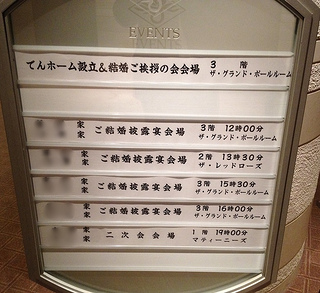 EVENTS
てんホーム設立&結婚ご挨拶の会会場 3階 ザ・グランド・ボールルーム
家 家 ご結婚披露宴会場 3階 12時00分 ザ・グランド・ボールルーム
家 家 ご結婚披露宴会場 2階 13時30分 ザ・レッドローズ
家 家 ご結婚披露宴会場 3階 15時30分 ザ・グランド・ボールルーム
家 家 ご結婚披露宴会場 3階 16時00分 ザ・グランド・ボールルーム
家 家 二次会会場 1階 19時00分 マティーニーズ